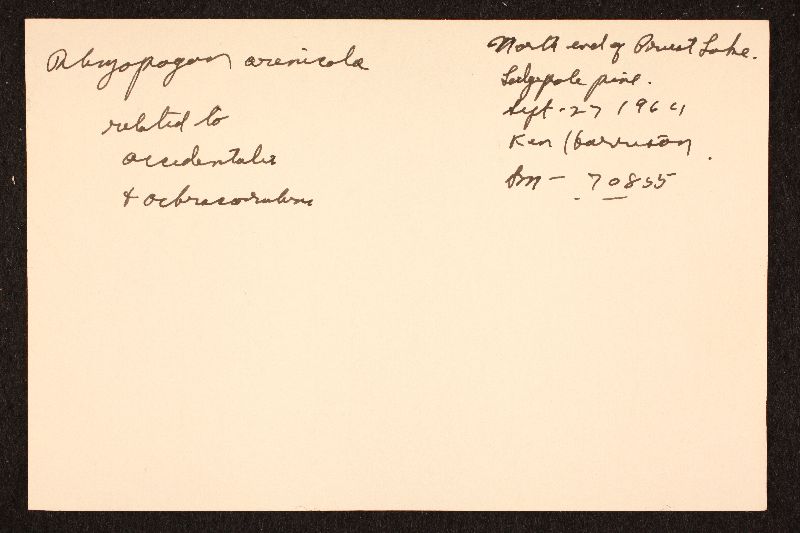 Rhizopogon arenicola
related to
occidentalis
& ochraceorubens
North end of Priest Lake.
Lodgepole pine.
Sept. 27 1964
Ken Harrison
Sm - 70855